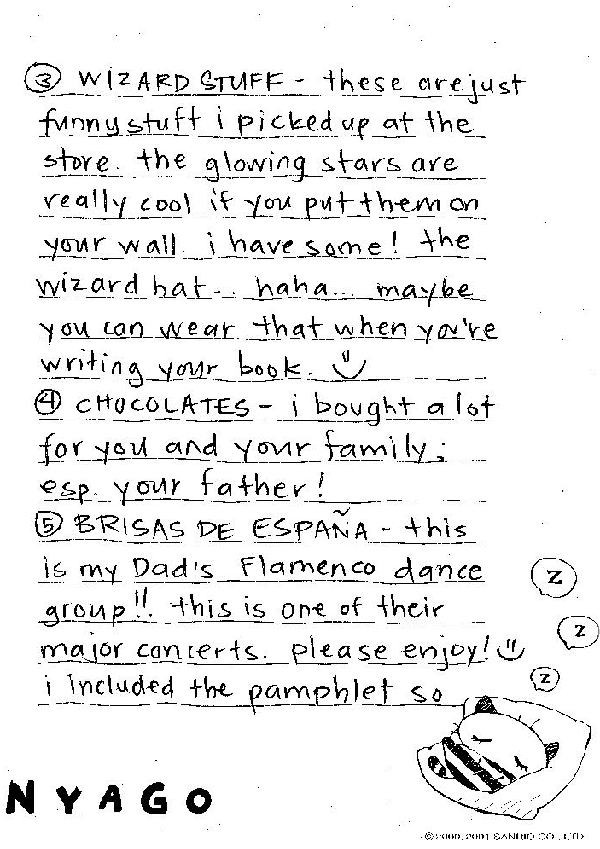 ③ WIZARD STUFF - these are just
funny stuff i picked up at the
store. the glowing stars are
really cool if you put them on
your wall. i have some! the
wizard hat... haha... maybe
you can wear that when you're
writing your book.
④ CHOCOLATES - i bought a lot
for you and your family;
esp. your father!
⑤ BRISAS DE ESPAÑA - this
is my Dad's Flamenco dance
group!! this is one of their
major concerts. please enjoy!
i included the pamphlet so
z
z
z
NYAGO
© 2000, 2001 SANRIO CO., LTD.